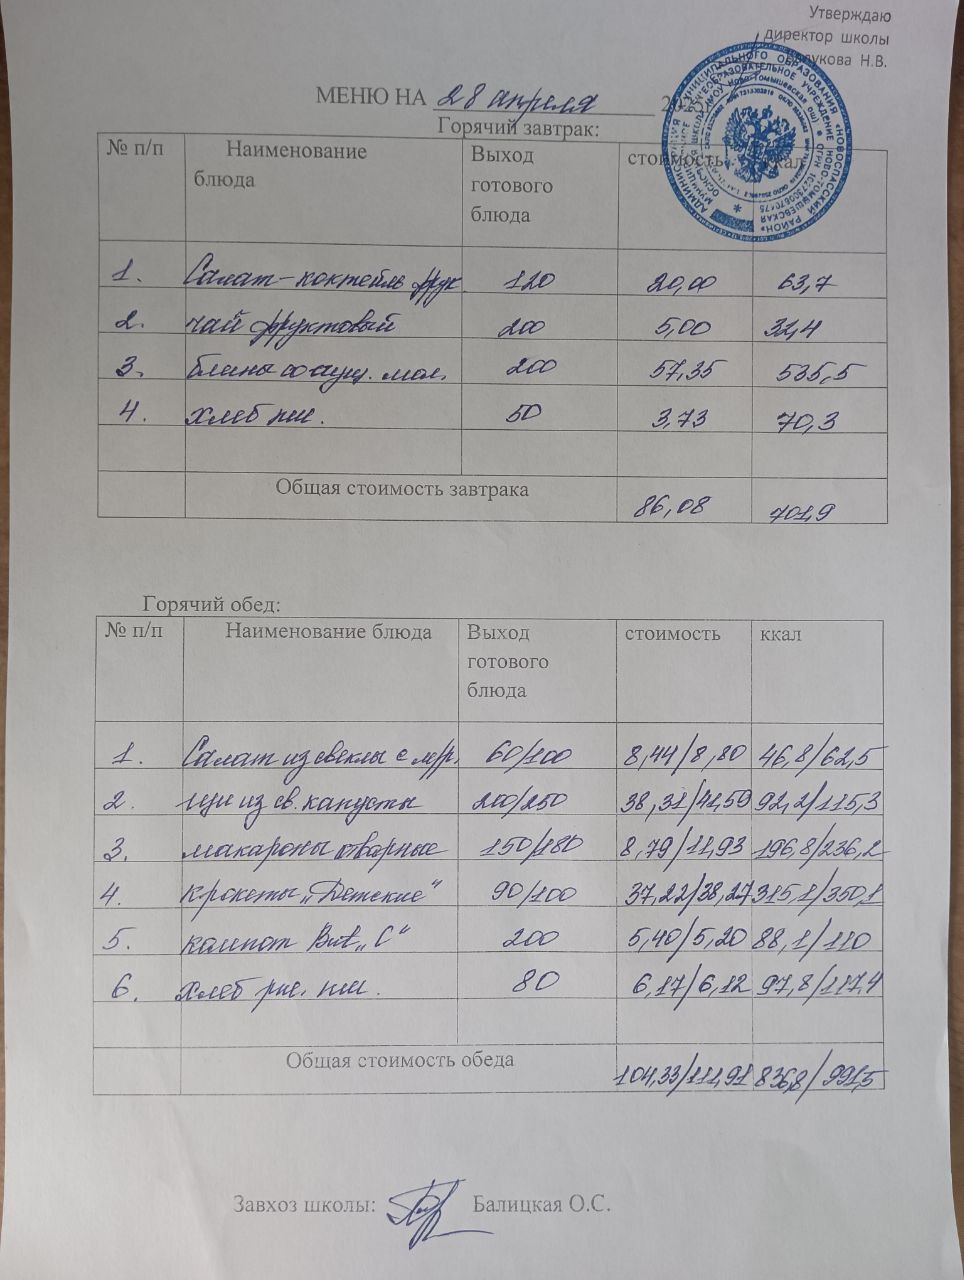 Утверждаю
директор школы
Н.В.
МЕНЮ НА 28 апреля
Горячий завтрак:
№ п/п Наименование блюда Выход готового блюда стоимость ккал
1. Салат-коктейль фрук. 120 20,00 63,7
2. чай фруктовый 200 5,00 32,4
3. блины со сгущ. мол. 200 57,35 535,5
4. хлеб пш. 50 3,73 70,3
Общая стоимость завтрака 86,08 701,9
Горячий обед:
№ п/п Наименование блюда Выход готового блюда стоимость ккал
1. Салат из свеклы с м/р. 60/100 8,44/8,80 46,8/62,5
2. щи из св. капусты 200/250 38,31/41,59 92,2/115,3
3. макароны отварные 150/180 8,79/11,93 196,8/236,2
4. крокеты „Детские" 90/100 37,22/38,27 315,1/350,1
5. компот Вит „С" 200 5,40/5,20 88,1/110
6. хлеб рж. пш. 80 6,17/6,12 97,8/117,4
Общая стоимость обеда 104,33/111,91 836,8/991,5
Завхоз школы: Балицкая О.С.